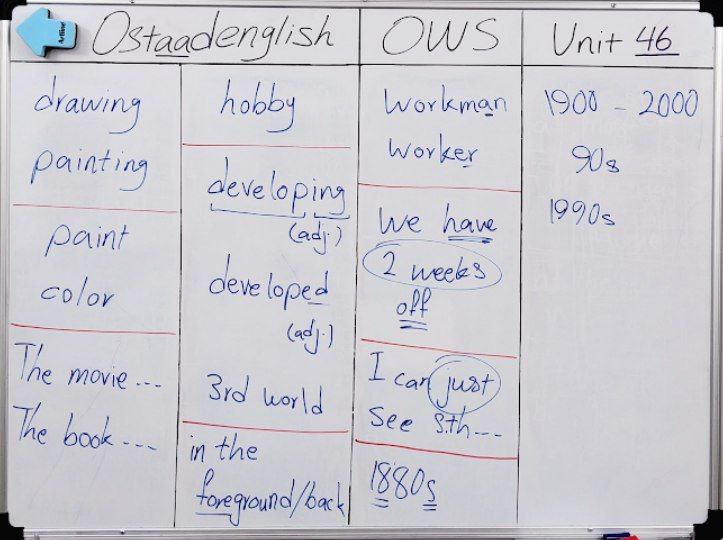 Ostaadenglish
OWS
Unit 46
drawing
painting
paint
color
The movie ...
The book ...
hobby
developing
(adj.)
developed
(adj.)
3rd world
in the
foreground/back
workman
worker
We have
2 weeks
off
I can just
see s.th...
1880s
1900 - 2000
90s
1990s
Artline